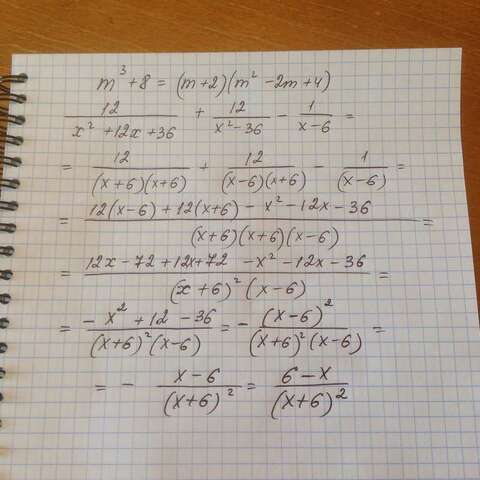 m³+8 = (m+2)(m² -2m+4)
12/(x² +12x+36) + 12/(x²-36) - 1/(x-6) =
= 12/((x+6)(x+6)) + 12/((x-6)(x+6)) - 1/(x-6) =
= (12(x-6)+12(x+6) - x² -12x-36)/((x+6)(x+6)(x-6)) =
= (12x-72+12x+72 -x² -12x-36)/((x+6)² (x-6)) =
= (-x² +12 -36)/((x+6)²(x-6)) = - (x-6)²/((x+6)² (x-6)) =
= - (x-6)/(x+6)² = (6-x)/(x+6)²